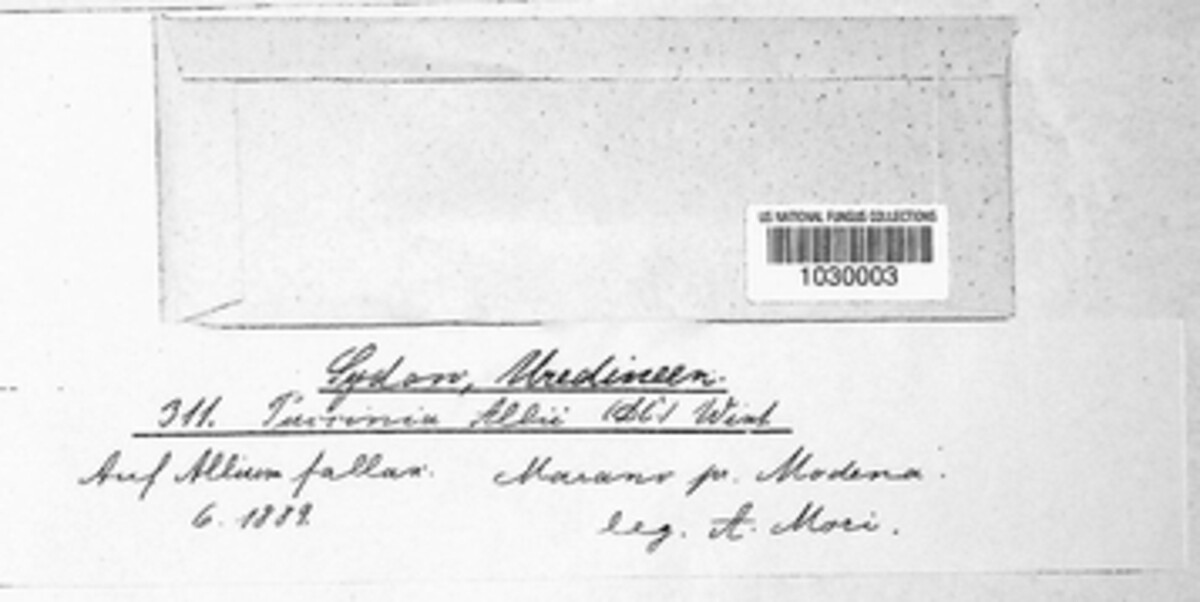 US NATIONAL FUNGUS COLLECTIONS
1030003
Sydow, Uredineen.
311. Puccinia Allii (DC) Wint
Auf Allium fallax. Marano pr. Modena.
6. 1889. leg. A. Mori.